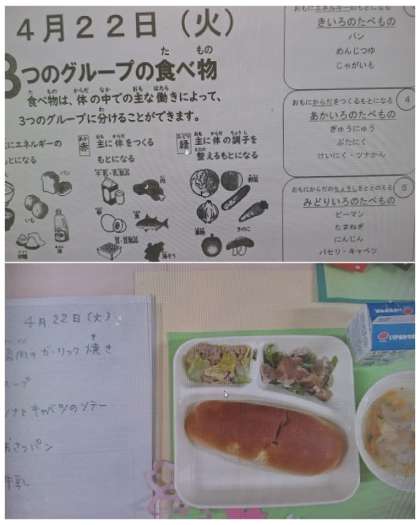 4月22日(火)
3つのグループの食べ物
食べ物は、体の中での主な働きによって、
3つのグループに分けることができます。
エネルギーの
もとになる
赤 主に体をつくる
もとになる
緑 主に体の調子を
整えるもとになる
きいろのたべもの
パン
めんじつゆ
じゃがいも
おもにからだをつくるもとになる
あかいろのたべもの
ぎゅうにゅう
ぶたにく
けいにく・ツナかん
みどりいろのたべもの
ピーマン
たまねぎ
にんじん
パセリ・キャベツ
4月22日(火)
ガーリック焼き
スープ
ツナとキャベツのソテー
パン